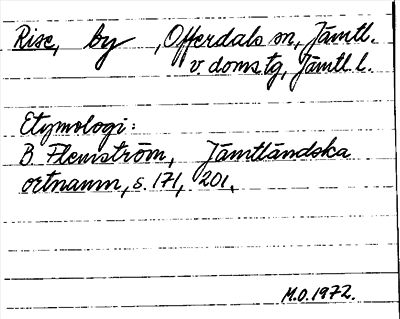 Rise, by, Offerdals sn, Jämtl.
v domstg, Jämtl l.
Etymologi:
B Flemström, Jämtländska
ortnamn, s. 171, 201.
M.O. 1972.